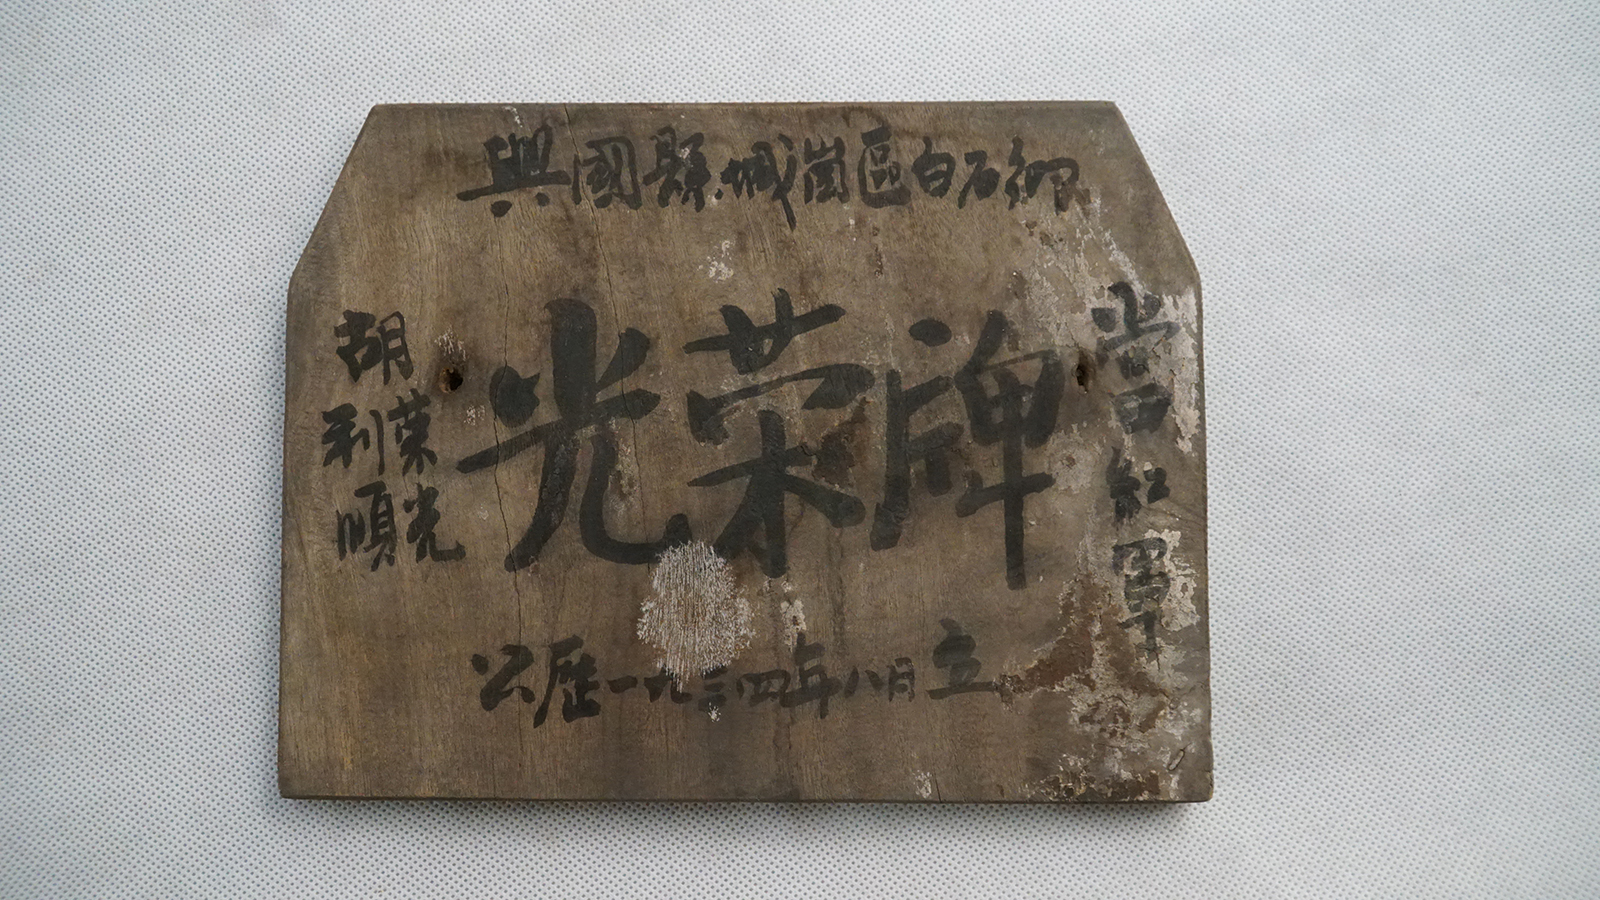 興國縣城崗區白石鄉
光荣牌
當红軍
胡
利順
荣光
公歷一九三四年八月立